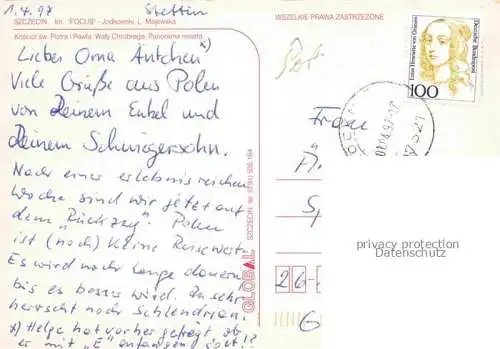 1.4.97 Stettin
SZCZECIN fot. 'FOCUS' - Jodkowski, L. Majewska
Kościół św. Piotra i Pawła. Wały Chrobrego. Panorama miasta.
WSZELKIE PRAWA ZASTRZEŻONE
Lieber Oma Äntchen x)
Viele Grüße aus Polen
von Deinem Enkel und
Deinem Schwiegersohn.
Nach einer erlebnisreichen
Woche sind wir jetzt auf
dem "Rückzug". Polen
ist (noch) keine Reise wert.
Es wird noch lange dauern
bis es besser wird. Zu sehr
herrscht noch Schlendrian.
x) Helge hat vorher gefragt, ob
er mit "E" anfangen soll!!
GLOBAL SZCZECIN
Frau
26
Luise Henriette von Oranien
Deutsche Bundespost
100
privacy protection
Datenschutz